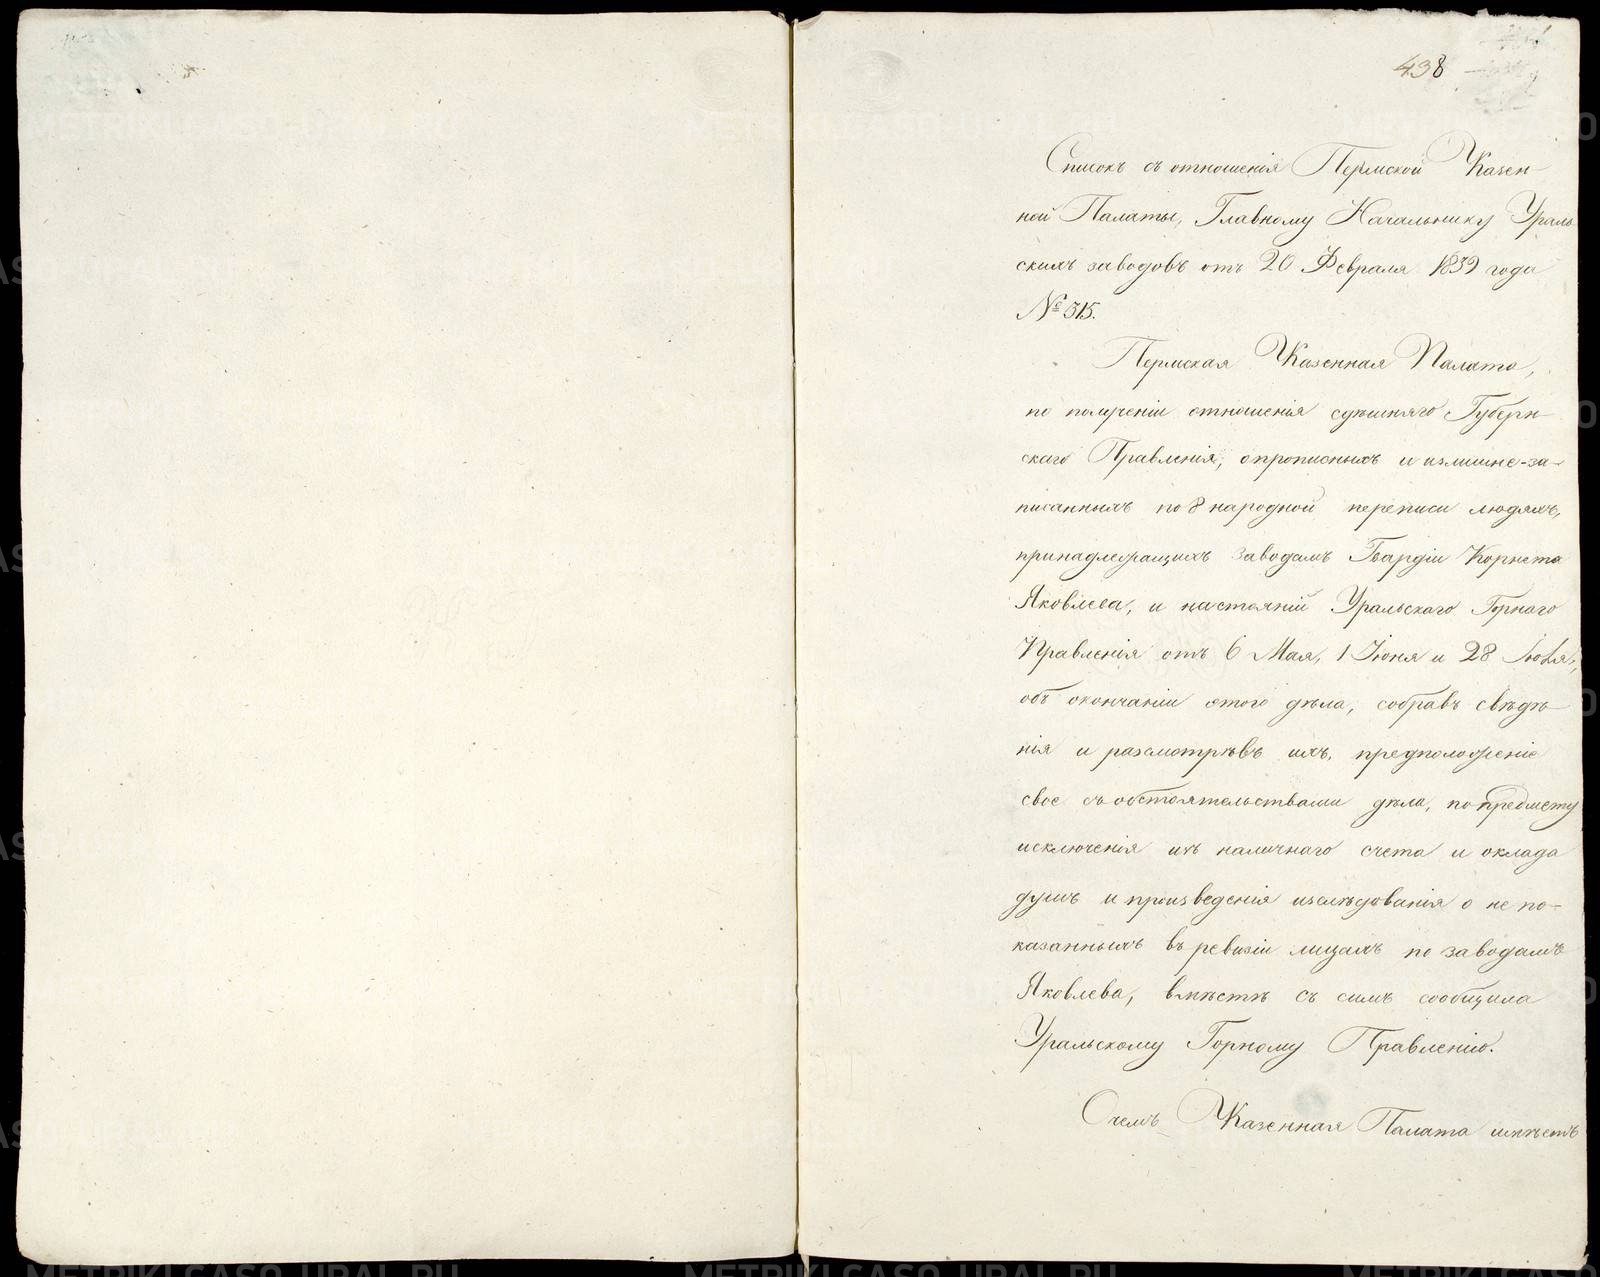 438
Списокъ съ отношенія Пермской Казен
ной Палаты, Главному Начальнику Ураль
скихъ заводовъ отъ 20 Февраля 1839 года
№ 515.
Пермская Казенная Палата,
по полученіи отношенія здѣшняго Губерн
скаго Правленія, о прописныхъ и излишне-за-
писанныхъ по 8 народной переписи людяхъ,
принадлежащихъ заводамъ Гвардіи Корнета
Яковлева, и настояній Уральскаго Горнаго
Правленія отъ 6 Мая, 1 Іюня и 28 Іюля,
объ окончаніи этого дѣла, собравъ свѣдѣ
нія и разсмотрѣвъ ихъ, предположеніе
свое съ обстоятельствами дѣла, по предмету
исключенія изъ наличнаго счета и оклада
душъ и произведенія изслѣдованія о не по-
казанныхъ въ ревизіи лицахъ по заводамъ
Яковлева, вмѣстѣ съ симъ сообщила
Уральскому Горному Правленію.
О чемъ Казенная Палата имѣетъ
METRIKI.GASO-URAL.RU